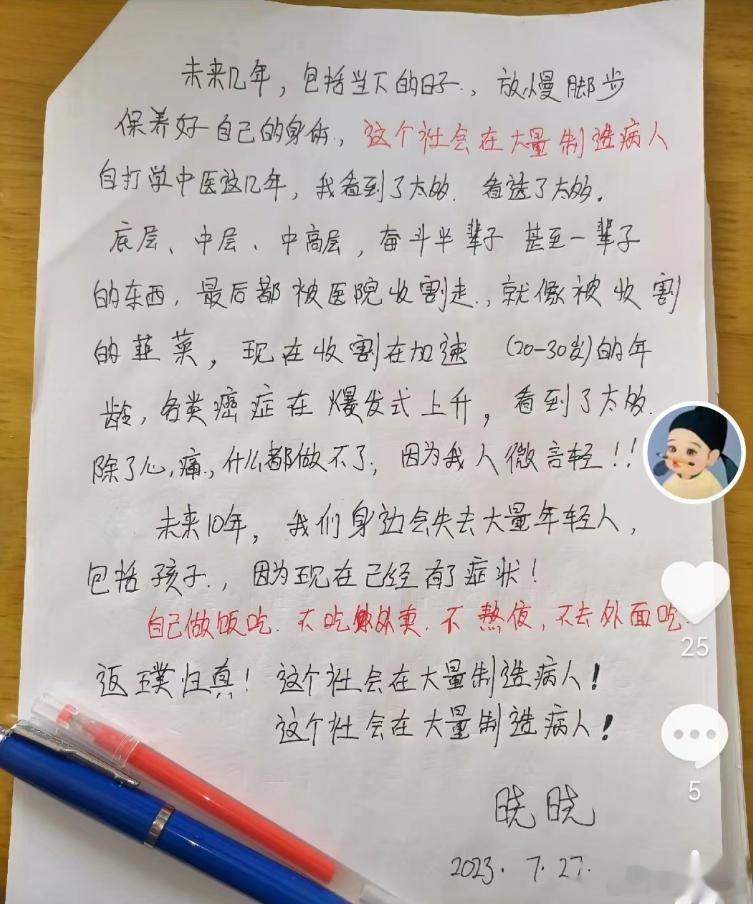 未来几年，包括当下的日子，放慢脚步
保养好自己的身体，这个社会在大量制造病人
自打学中医这几年，我看到了太多．看透了太多。
底层、中层、中高层，奋斗半辈子 甚至一辈子
的东西，最后都被医院收割走，就像被收割
的韭菜，现在收割在加速 (20-30岁)的年
龄，各类癌症在爆发式上升，看到了太多．
除了心痛，什么都做不了，因为我人微言轻！！
未来10年，我们身边会失去大量年轻人，
包括孩子，因为现在已经有了症状！
自己做饭吃．不吃外卖．不熬夜，不去外面吃．
返璞归真！这个社会在大量制造病人！
这个社会在大量制造病人！
晓晓
2023.7.27.
25
5